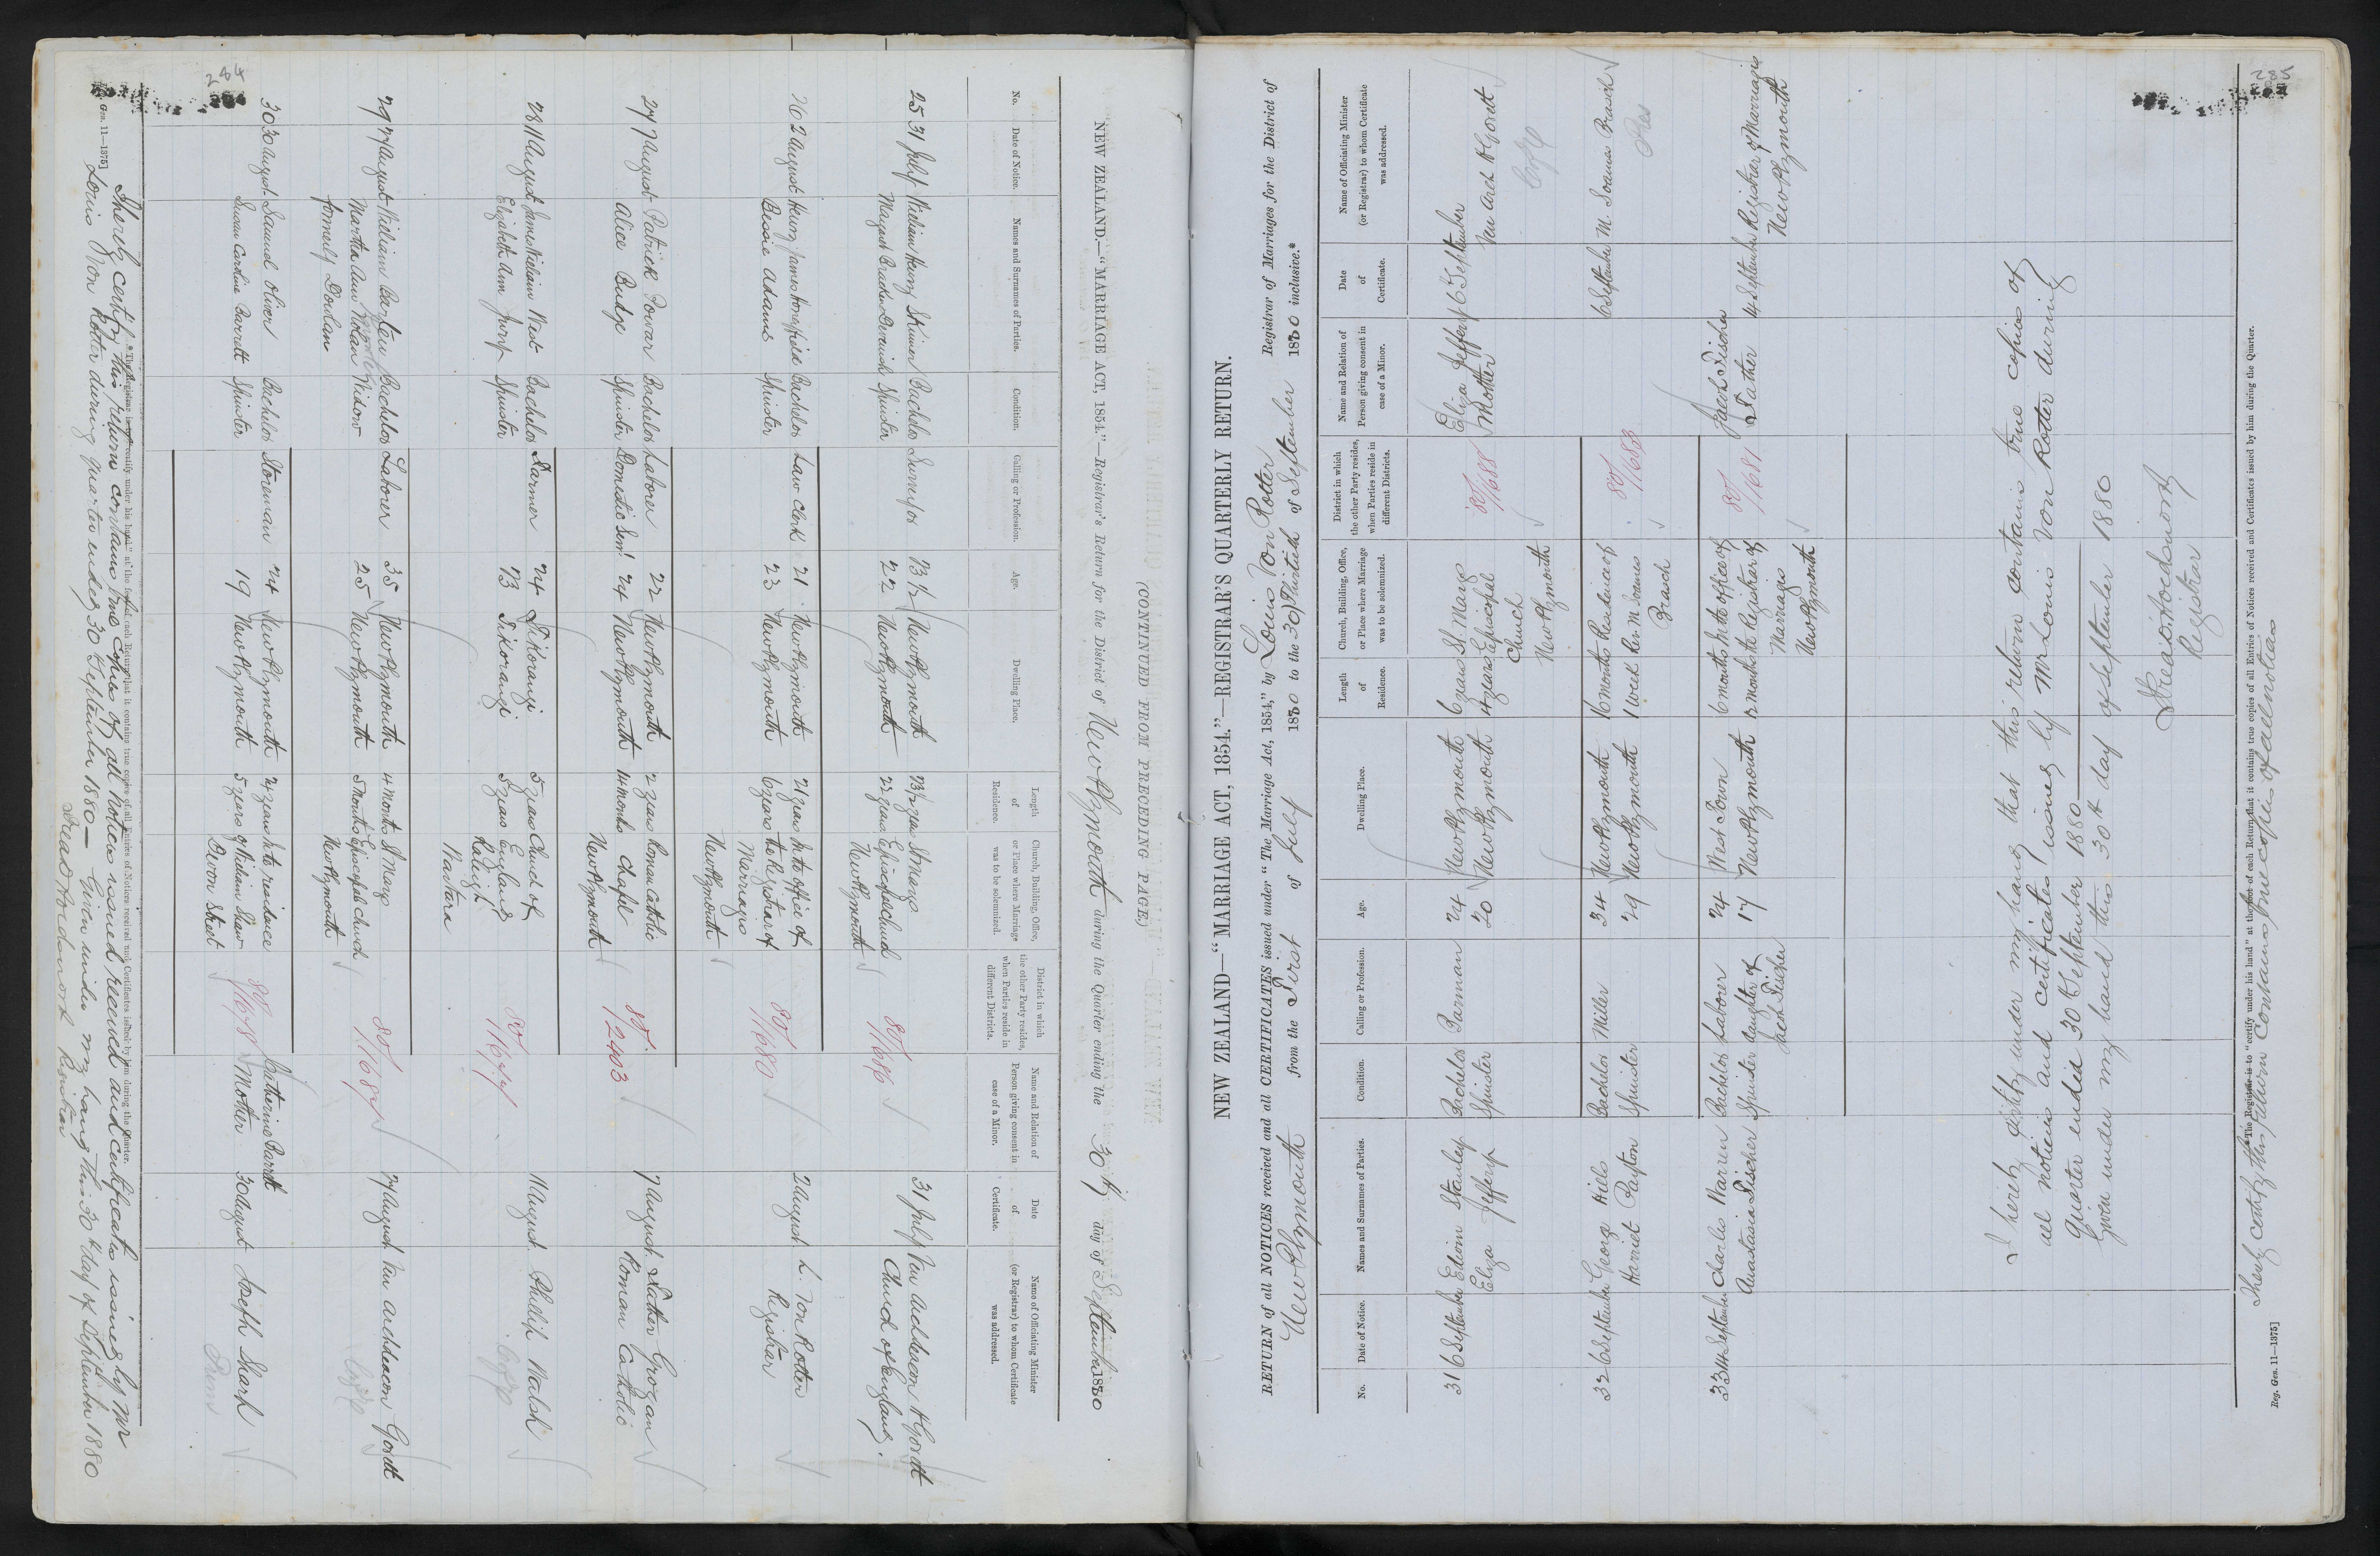 284
(CONTINUED FROM PRECEDING PAGE.)
NEW ZEALAND.—"MARRIAGE ACT, 1854."—Registrar's Return for the District of New Plymouth during the Quarter ending the 30th day of September 1880
No.
Date of Notice.
Names and Surnames of Parties.
Condition.
Calling or Profession.
Age.
Dwelling Place.
Length of Residence.
Church, Building, Office, or Place where Marriage was to be solemnized.
District in which the other Party resides, when Parties reside in different Districts.
Name and Relation of Person giving consent in case of a Minor.
Date of Certificate.
Name of Officiating Minister (or Registrar) to whom Certificate was addressed.
25 31 July William Henry Skinner Bachelor Surveyor 23 1/2 New Plymouth 23 1/2 years St Marys 31 July Ven Archdeacon H Govett
Margaret Bracken Devenish Spinster 22 New Plymouth 22 years Episcopal Church 80/1686 Church of England.
New Plymouth
26 2 August Henry James Honeyfield Bachelor Law Clerk 21 New Plymouth 21 years In the office of 2 August L. Von Rotter
Bessie Adams Spinster 23 New Plymouth 6 years the Registrar of 80/1680 Registrar
Marriages
New Plymouth
27 7 August Patrick Power Bachelor Laborer 22 New Plymouth 2 years Roman Catholic 7 August Father Grogan
Alice Budge Spinster Domestic Servt 24 New Plymouth 14 months Chapel 80/2403 Roman Catholic
New Plymouth
28 11 August James William West Bachelor Farmer 24 Tikorangi 5 years Church of 11 August Philip Walsh
Elizabeth Ann Jury Spinster 23 Tikorangi 5 years England 80/1677
Raleigh
Waitara
29 27 August William Bachelor Laborer 35 New Plymouth 4 months St Marys 27 August Ven Archdeacon Govett
Martha Ann Nolan Widow 25 New Plymouth 5 months Episcopal Church 80/1687
formerly Dowham New Plymouth
30 30 August Samuel Oliver Bachelor Storeman 24 New Plymouth 24 years In the residence Catherine Barrett 30 August Joseph Shark
Susan Caroline Barrett Spinster 19 New Plymouth 5 years of William Shaw 80/1678 Mother
Devon Street
* The Registrar is to "certify under his hand" at the foot of each Return that it contains true copies of all Entries of Notices received and Certificates issued by him during the Quarter.
I hereby certify this return contains true copies of all notices issued received and certificates issued by Mr
Louis Von Rotter during quarter ended 30 September 1880— Given under my hand this 30th day of September 1880
Registrar
Reg. Gen. 11—1375]
285
NEW ZEALAND—"MARRIAGE ACT, 1854."—REGISTRAR'S QUARTERLY RETURN.
RETURN of all NOTICES received and all CERTIFICATES issued under "The Marriage Act, 1854," by Louis Von Rotter Registrar of Marriages for the District of
New Plymouth from the First of July 1880 to the 30 Thirtieth of September 1880 inclusive.*
No.
Date of Notice.
Names and Surnames of Parties.
Condition.
Calling or Profession.
Age.
Dwelling Place.
Length of Residence.
Church, Building, Office, or Place where Marriage was to be solemnized.
District in which the other Party resides, when Parties reside in different Districts.
Name and Relation of Person giving consent in case of a Minor.
Date of Certificate.
Name of Officiating Minister (or Registrar) to whom Certificate was addressed.
31 6 September Edwin Stanley Bachelor Barman 24 New Plymouth 6 years St. Marys Eliza Jeffery 6 September
Eliza Jeffery Spinster 20 New Plymouth 4 years Episcopal 80/1688 Mother Ven Arch H Govett
Church
New Plymouth
32 6 September George Hills Bachelor Miller 34 New Plymouth 16 months Residence of 6 September M. Soanes Brasch
Harriet Payton Spinster 29 New Plymouth 1 week Rev M. Soanes
Brasch Pres
33 14 September Charles Warren Bachelor Laborer 24 West Town 6 months In the office of 80/1681 Jacob Fischer 14 September Registrar of Marriages
Anastasia Fischer Spinster daughter of 17 New Plymouth the Registrar of Father New Plymouth
Jacob Fischer Marriages
New Plymouth
I hereby certify under my hand that this return contains true copies of
all notices and certificates issued by Mr Louis Von Rotter during
Quarter ended 30 September 1880
Given under my hand this 30th day of September 1880
Registrar
* The Registrar is to "certify under his hand" at the foot of each Return that it contains true copies of all Entries of Notices received and Certificates issued by him during the Quarter.
I hereby certify this return contains true copies of all notices
Reg. Gen. 11—1375]